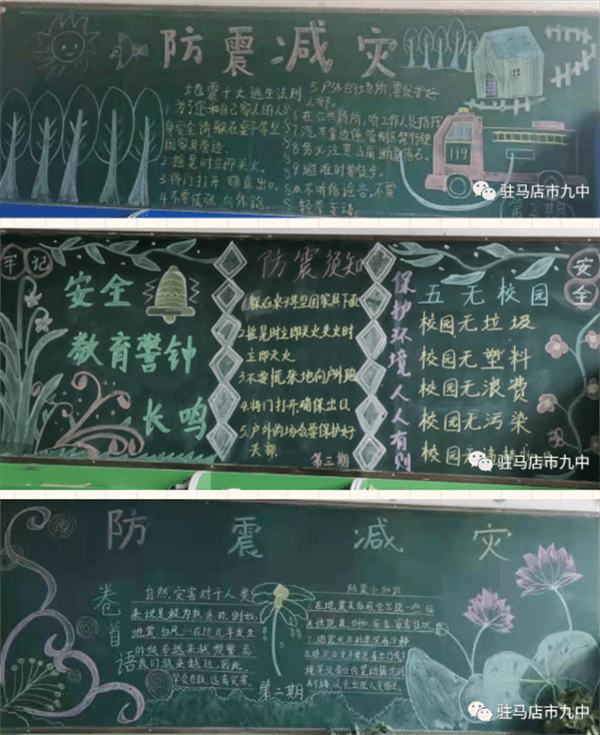 防震减灾
地震十大逃生法则
1.为了您和自己家人的人
身安全请躲在桌子等坚
固家具旁边。
2.摇晃时立即关火。
3.将门打开,确保出口。
4.不要慌张向外跑。
5.户外的场所,要保护好
头部。
6.在公共场所,听工作人员指挥
7.汽车靠边停,管制区禁行驶
8.务必注意山崩断崖落石。
9.避难时要徒步。
10.不听信谣言,不要
轻举妄动。
119
第三期
驻马店市九中
牢记
安全
教育警钟
长鸣
防震须知
1.躲在桌子等坚固家具下面
2.摇晃时立即灭火失火时
立即灭火
3.不要慌张地向户外跑
4.将门打开确保出口
5.户外的场合要保护好
头部
第三期
保护环境人人有则
安全
五无校园
校园无垃圾
校园无塑料
校园无浪费
校园无污染
校园无
驻马店市九中
防震减灾
卷首语
自然灾害对于人类
来说是极为熟悉的,例如
地震、台风
的频率越来越频繁,离
我们越来越近,因此,
学会自救,远离灾害。
第二期
防震小知识
驻马店市九中